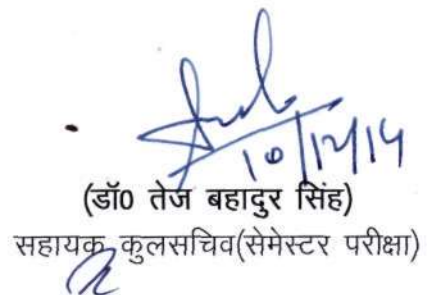 10/12/14
(डॉ0 तेज बहादुर सिंह)
सहायक कुलसचिव(सेमेस्टर परीक्षा)